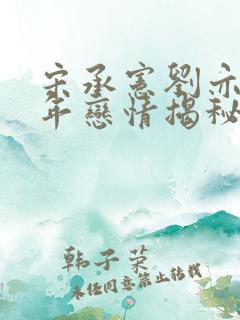 宋承憲劉亦
年戀情揭秘
韩子荣
未经同意禁止转载